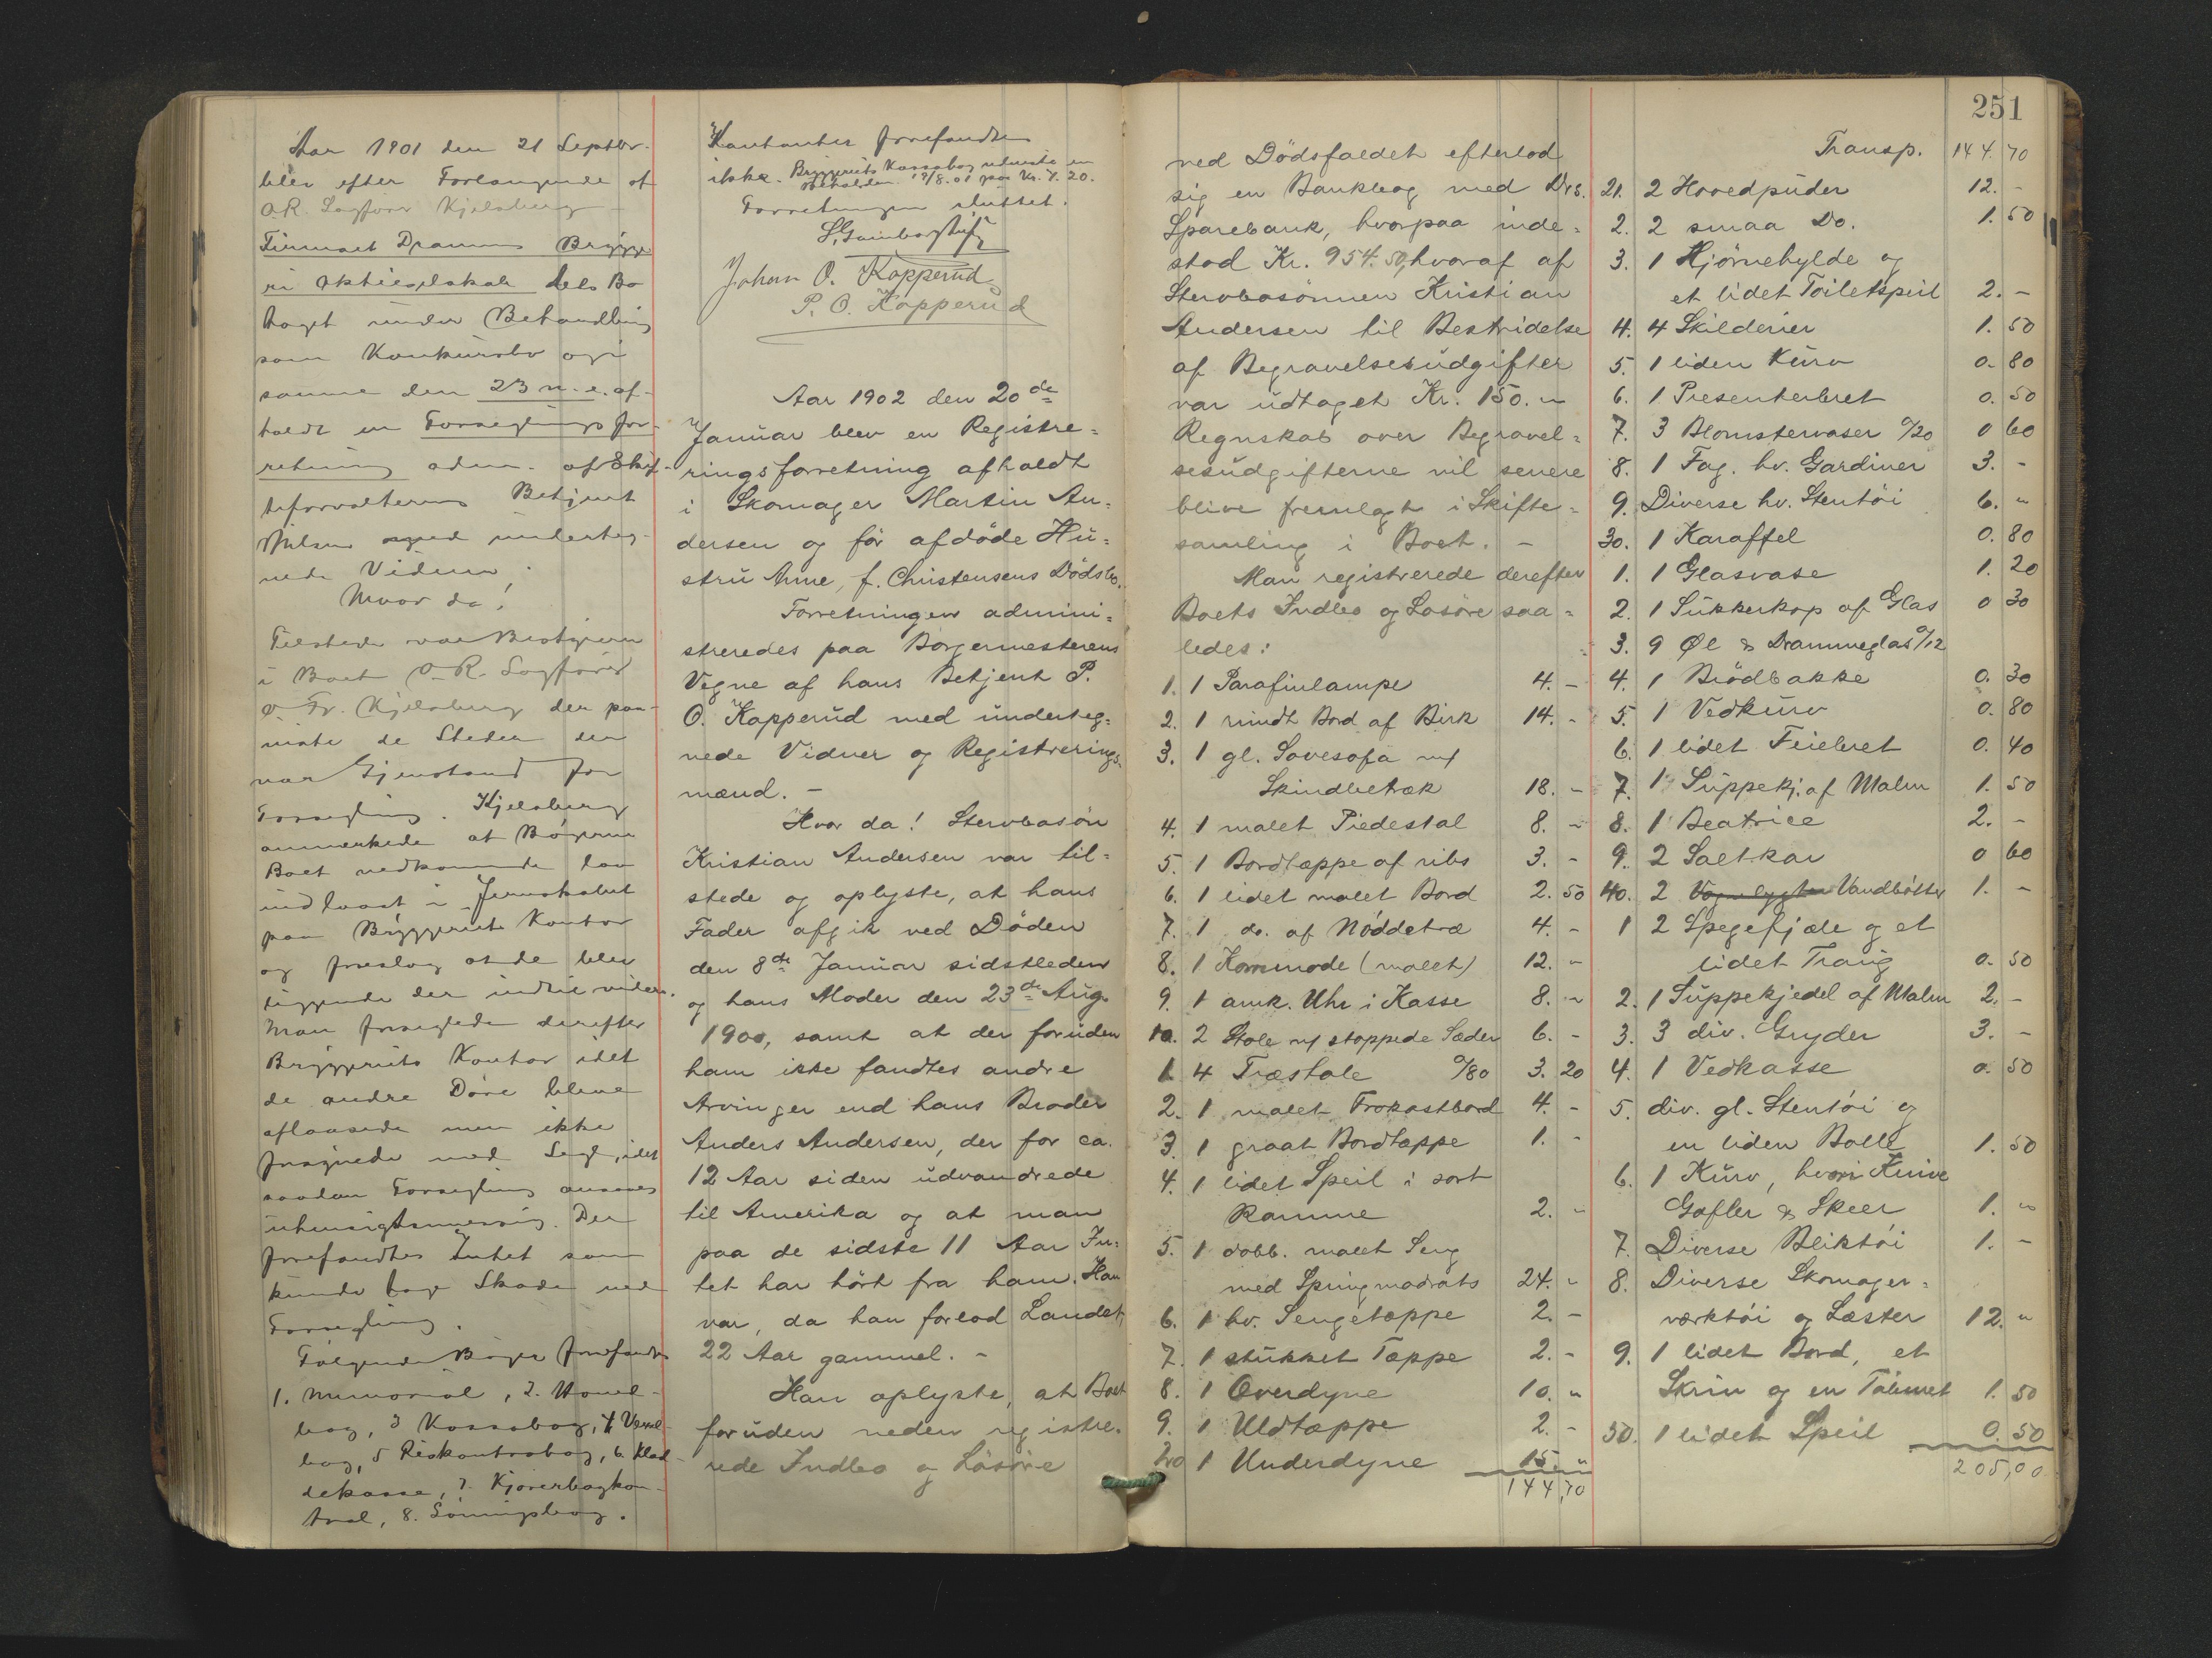 Aar 1901 den 21 Septbr.
blev efter Forlangende af
O.R. Sagfører Kjelsberg
Firmaet Drammens Brygge
ri Aktieselskab dets Bo
taget under Behandling
som Konkursbo og i
samme den 23 n. e. af-
holdt en Forseglingsfor-
retning adm. af Skif-
teforvalterens Betjent
Nilsen med underteg-
nede Vidner.
Hvor da!
Tilstede var Bestyreren
i Boet O.R. Sagfører
Fr. Kjelsberg der paa-
viste de Steder der
var Gjenstand for
Forsegling. Kjelsberg
anmerkede at Bøgerne
Boet vedkommende laa
indlaast i Jernskabet
paa Bryggeriets Kontor
og foreslog at de blev
liggende der indtil videre.
Man forseglede derefter
Bryggeriets Kontor idet
de andre Døre bleve
aflaasede men ikke
forsynede med Segl, idet
saadan Forsegling ansaaes
uhensigtsmessig. Der
forefandtes Intet som
kunde tage Skade ved
Forsegling.
Følgende Bøger forefandtes
1. Memorial, 2. Hoved-
bog, 3 Kassabog, 4 Vexel-
bog, 5 Reskontrobog, 6. Klad-
dekasse, 7. Kjørerbogkon-
trol, 8. Lønningsbog.
Kontanter forefandtes
ikke. Bryggeriets Kassabog udviste en
Beholdn. 19/8.01 paa Kr. 7.20.
Forretningen sluttet.
Johan O. Kopperud
P. O. Kopperud
Aar 1902 den 20de
Januar blev en Registre=
ringsforretning afholdt
i Skomager Martin An=
dersen og før afdøde Hu=
stru Anne, f. Christensens Dødsbo.
Forretningen admini=
streredes paa Borgermesterens
Vegne af hans Betjent P.
O. Kopperud med underteg=
nede Vidner og Registrerings-
mænd. -
Hvor da! Stervbosøn
Kristian Andersen var til=
stede og oplyste, at hans
Fader afgik ved Døden
den 8de Januar sidstleden
og hans Moder den 23de Aug.
1900, samt at der foruden
ham ikke fandtes andre
Arvinger end hans Broder
Anders Andersen, der for ca.
12 Aar siden udvandrede
til Amerika og at man
paa de sidste 11 Aar In=
tet har hørt fra ham. Han
var, da han forlod Landet,
22 Aar gammel. -
Han oplyste, at Boet
foruden neden registre=
rede Indbo og Løsøre
ved Dødsfaldet efterlod
sig en Bankbog med Drs.
Sparebank, hvorpaa inde=
stod Kr. 954.50, hvoraf af
Stervbosønnen Kristian
Andersen til Bestridelse
af Begravelsesudgifter
var udtaget Kr. 150. "
Regnskab over Begravel=
sesudgifterne vil senere
blive fremlagt i Skifte=
samling i Boet. -
Man registrerede derefter
Boets Indbo og Løsøre saa=
ledes:
1. 1 Parafinlampe 4. -
2. 1 rundt Bord af Birk 14. -
3. 1 gl. Sovesofa m/
Skindbetræk 18. -
4. 1 malet Piedestal 8. -
5. 1 Bordtæppe af ribs 3. -
6. 1 lidet malet Bord 2. 50
7. 1 do. af Nøddetræ 4. -
8. 1 Kommode (malet) 12. -
9. 1 amk. Uhr i Kasse 8. -
10. 2 Stole m/ stoppede Sæder 6. -
1 4 Træstole a/80 3. 20
2. 1 malet Frokostbord 4. -
3. 1 graat Bordtæppe 1. -
4. 1 lidet Speil i sort
Ramme 2. -
5. 1 dobb. malet Seng
med Springmadrats 24. -
6. 1 hv. Sengetæppe 2. -
7. 1 stukket Tæppe 2. -
8. 1 Overdyne 10. "
9. 1 Uldtæppe 2. -
20 1 Underdyne 15. "
144,70
251
Transp. 144. 70
21. 2 Hovedpuder 12. -
2. 2 smaa Do. 1. 50
3. 1 Hjørnehylde og
et lidet Toiletspeil 2. -
4. 4 Skilderier 1. 50
5. 1 liden Kurv 0. 80
6. 1 Presenterbret 0. 50
7. 3 Blomstervaser a/20 0 60
8. 1 Fag. hv. Gardiner 3. -
9. Diverse hv. Stentøi 6. "
30. 1 Karaffel 0. 80
1. 1 Glasvase 1. 20
2. 1 Sukkerkop af Glas 0 30
3. 9 Øl & Drammeglas a/12
4. 1 Brødbakke 0. 30
5. 1 Vedkurv 0. 80
6. 1 lidet Feiebret 0. 40
7. 1 Suppekj. af Malm 1. 50
8. 1 Beatrice 2. -
9. 2 Saltkar 0 60
40. 2 Vognlygter Vandbøtter 1. -
1 2 Spegefjæle og et
lidet Traug 0. 50
2. 1 Suppekjedel af Malm 2. -
3. 3 div. Gryder 3. -
4. 1 Vedkasse 0. 50
5. div. gl. Stentøi og
en liden Balle 1. 50
6. 1 Kurv, hvori Knive
Gafler & Skeer 1. "
7. Diverse Bliktøi 1. -
8. Diverse Skomager=
værktøi og Læster 12. "
9. 1 lidet Bord, et
Skrin og en 1. 50
50. 1 lidet Speil 0. 50
205,00